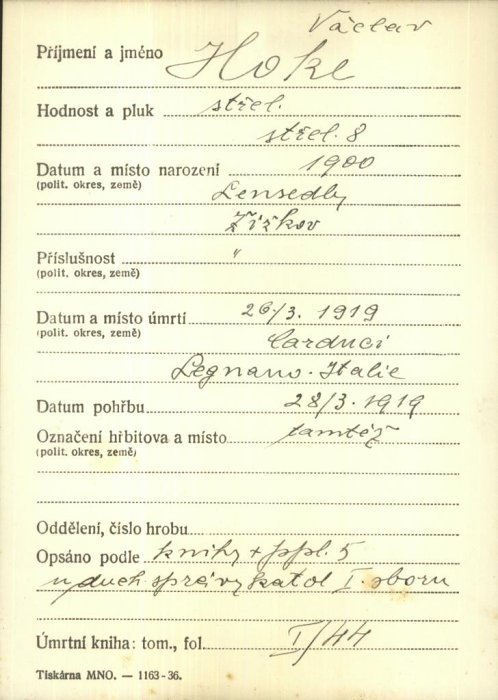 Václav
Příjmení a jméno Hokl
Hodnost a pluk střel.
střel. 8
Datum a místo narození 1900
(polit. okres, země) Lensedly
Žižkov
Příslušnost "
(polit. okres, země)
Datum a místo úmrtí 26/3. 1919
(polit. okres, země) Carduci
Legnano. Italie
Datum pohřbu 28/3. 1919
Označení hřbitova a místo tamtéž
(polit. okres, země)
Oddělení, číslo hrobu
Opsáno podle knihy + ppl. 5
u duch. správy katol I. sboru
Úmrtní kniha: tom., fol. I/44
Tiskárna MNO. — 1163-36.